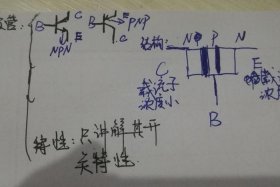 管:
B C E NPN
B E PNP C
结构: N P N
C
载流子
浓度小
E
浓度大
B
特性: 只讲解其开
关特性.